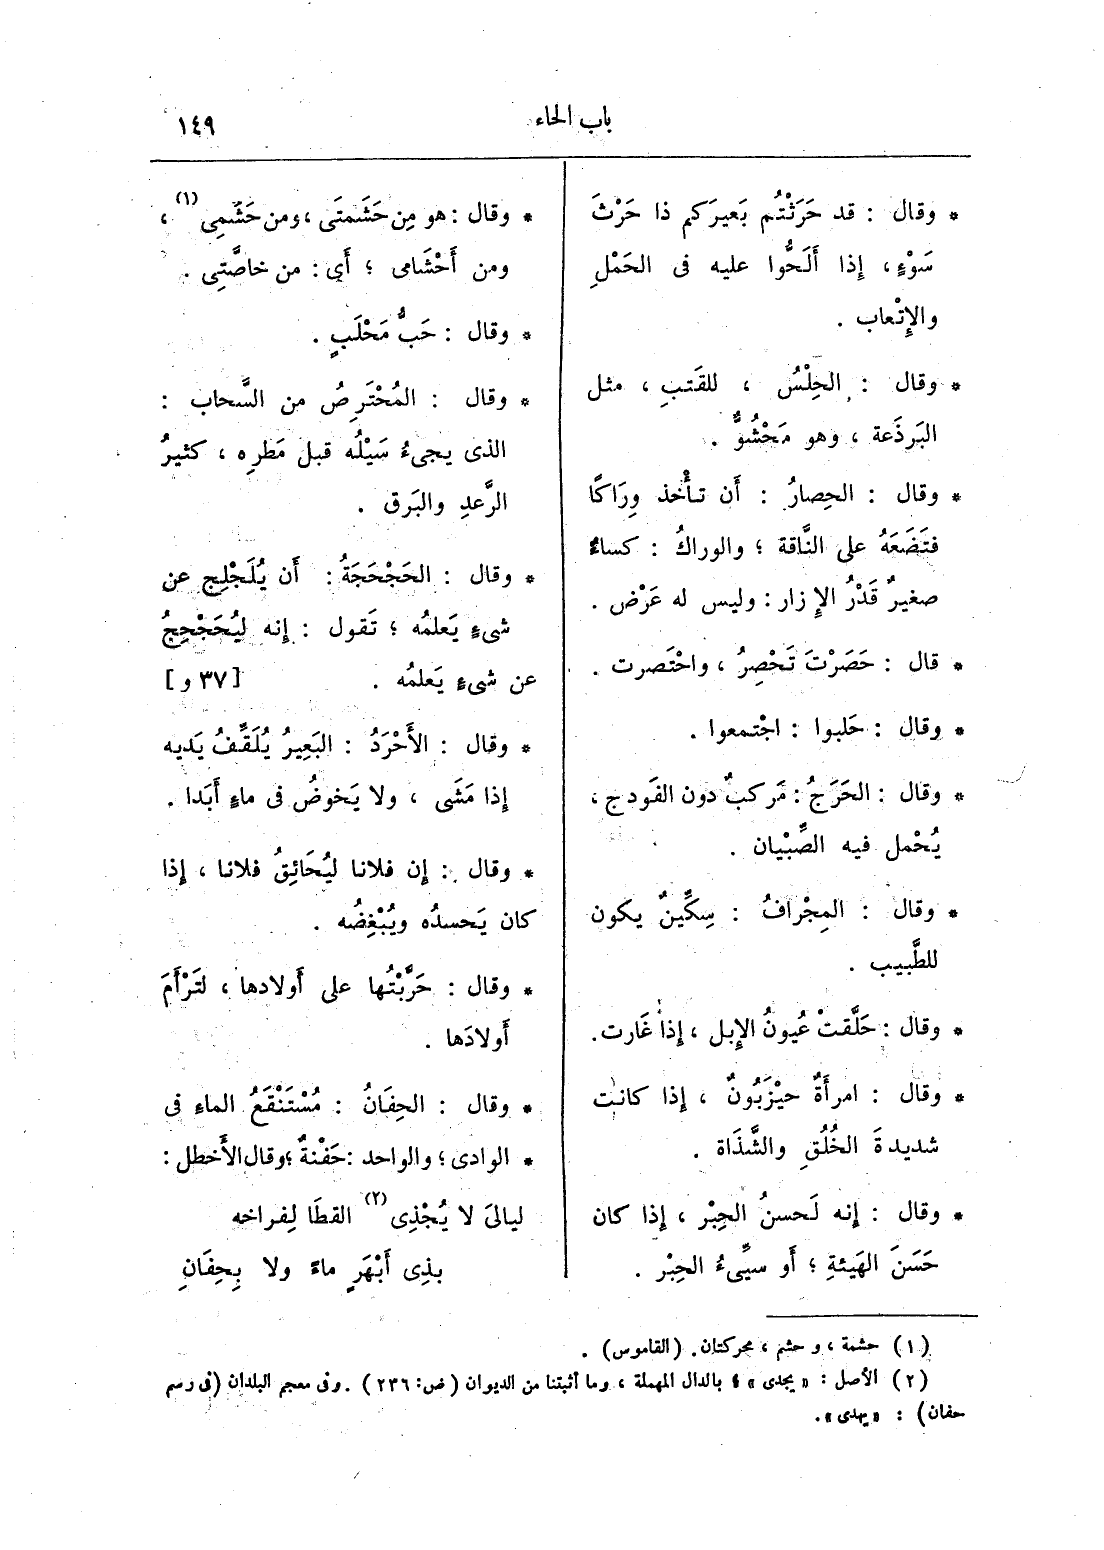 باب الحاء
١٤٩
* وقال : قد حَرَثْتُم بَعيرَكم ذا حَرْثَ
سَوْءٍ، إذا أَلَحُّوا عليه فى الحَمْلِ
والإِتْعاب .
* وقال : الحِلْسُ ، للقَتبِ ، مثل
البَرذَعة ، وهو مَحْشُوٌّ .
* وقال : الحِصارُ : أَن تأْخذ وِرَاكًا
فتَضَعَهُ على النَّاقة ؛ والوراكُ : كساءٌ
صغيرٌ قَدْرُ الإِزار : وليس له عَرْض .
* قال : حَصَرْتَ تَحْصِرُ ، واحْتَصرت .
* وقال : حَلبوا : اجْتمعوا .
* وقال : الحَرَجُ : مَركبٌ دون الفَودج ،
يُحْمل فيه الصِّبْيان .
* وقال : المِجْرافُ : سِكِّينٌ يكون
للطَّبيب .
* وقال : حَلَّقتْ عُيونُ الإِبل ، إِذا غَارت.
* وقال : امرأَةٌ حيْزَبُونٌ ، إذا كانت
شديدةَ الخُلُقِ والشَّذَاة .
* وقال : إِنه لَحسنُ الحِبْر ، إذا كان
حَسَنَ الهَيئةِ ؛ أَو سيِّىءُ الحِبْر .
* وقال : هو مِن حَشَمتَى ، ومن حَشَمِى (١) ،
ومن أَحْشامى ؛ أَى : من خاصَّتِى .
* وقال : حَبُّ مَحْلَبٍ .
* وقال : المُحْتَرِصُ من السَّحاب :
الذى يجىءُ سَيْلُه قبل مَطرِه ، كثيرُ
الرَّعدِ والبَرق .
* وقال : الحَجْحَجَةُ : أَن يُلَجْلِج عن
شىءٍ يَعلمُه ؛ تَقول : إِنه ليُحَجْحِجُ
عن شىءٍ يَعلمُه . [٣٧ و]
* وقال : الأَحْرَدُ : البَعِيرُ يُلَقِّفُ يَديه
إِذا مَشَى ، ولا يَخوضُ فى ماءٍ أَبَدا .
* وقال : إِن فلانا ليُحَائِقُ فلانا ، إذا
كان يَحسدُه ويُبْغِضُه .
* وقال : حَرَّبْتُها على أَولادها ، لتَرْأَمَ
أَولادَها .
* وقال : الحِفَانُ : مُسْتَنْقَعُ الماءِ فى
* الوادى ؛ والواحد : حَفْنةٌ ؛ وقال الأَخطل :
ليالىَ لا يُجْذِى (٢) القطَا لِفراخه
بذِى أَبْهَرٍ ماءً ولا بِحِفَانِ
(١) حشمة ، و حشم ، محركتان. (القاموس) .
(٢) الأصل : « يجدى » ، بالدال المهملة ، وما أثبتنا من الديوان (ص: ٢٣٦ ) . وفى معجم البلدان (فى رسم
حفان) : « يهدى ».